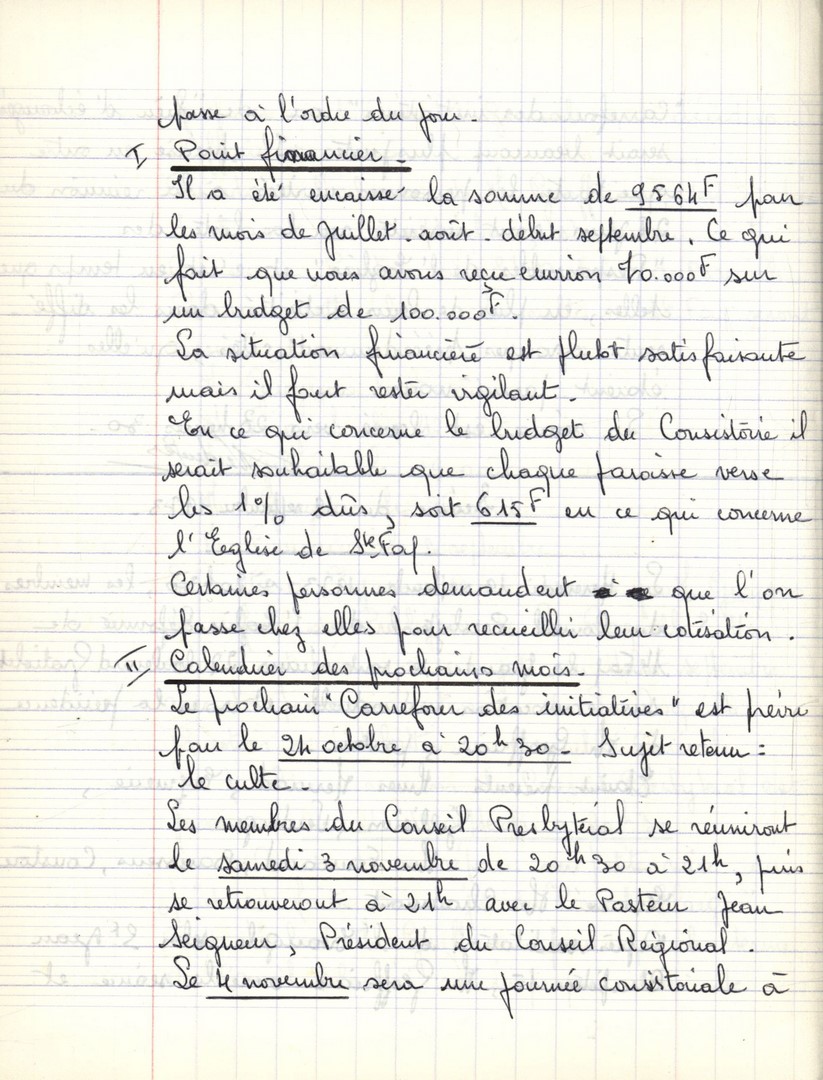 passe à l'ordre du jour.
I Point financier.
Il a été encaissé la somme de 9564F pour
les mois de Juillet. août. début septembre. Ce qui
fait que nous avons reçu environ 70.000F sur
un budget de 100.000F.
La situation financière est plutôt satisfaisante
mais il faut rester vigilant.
En ce qui concerne le budget du Consistoire il
serait souhaitable que chaque paroisse verse
les 1% dûs, soit 615F en ce qui concerne
l'Eglise de Ste Foy.
Certaines personnes demandent que l'on
passe chez elles pour recueillir leur cotisation.
II Calendrier des prochains mois.
Le prochain "Carrefour des initiatives" est prévu
pour le 24 octobre à 20h30. Sujet retenu :
le culte.
Les membres du Conseil Presbytéral se réuniront
le samedi 3 novembre de 20h30 à 21h, puis
se retrouveront à 21h avec le Pasteur Jean
Seigneur, Président du Conseil Régional.
Le 4 novembre sera une journée consistoriale à